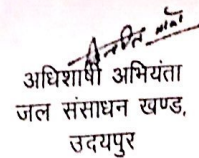 अधिशाषी अभियंता
जल संसाधन खण्ड,
उदयपुर